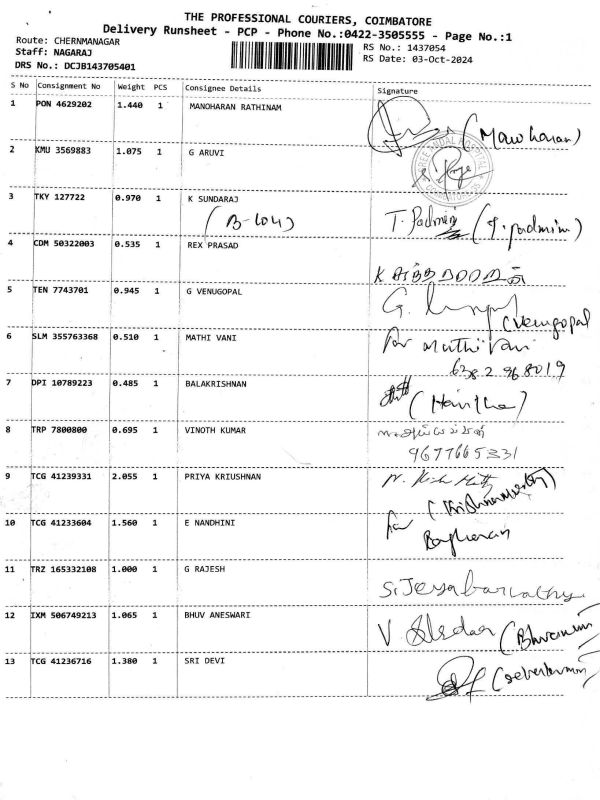 THE PROFESSIONAL COURIERS, COIMBATORE
Delivery Runsheet - PCP - Phone No.:0422-3505555 - Page No.:1
Route: CHERNMANAGAR
Staff: NAGARAJ
DRS No.: DCJB143705401
RS No.: 1437054
RS Date: 03-Oct-2024
S No Consignment No Weight PCS Consignee Details Signature
1 PON 4629202 1.440 1 MANOHARAN RATHINAM
(Manoharan)
2 KMU 3569883 1.075 1 G ARUVI
3 TKY 127722 0.970 1 K SUNDARAJ
(B-404) T. Padmini (T. padmini)
4 CDM 50322003 0.535 1 REX PRASAD
5 TEN 7743701 0.945 1 G VENUGOPAL
(Venugopal
6 SLM 355763368 0.510 1 MATHI VANI
for Mathi Vani
638 2 968019
7 DPI 10789223 0.485 1 BALAKRISHNAN
(Haritha)
8 TRP 7800800 0.695 1 VINOTH KUMAR
9677665331
9 TCG 41239331 2.055 1 PRIYA KRIUSHNAN
(Krishnamurthy)
10 TCG 41233604 1.560 1 E NANDHINI
for
11 TRZ 165332108 1.000 1 G RAJESH
12 IXM 506749213 1.065 1 BHUV ANESWARI
13 TCG 41236716 1.380 1 SRI DEVI